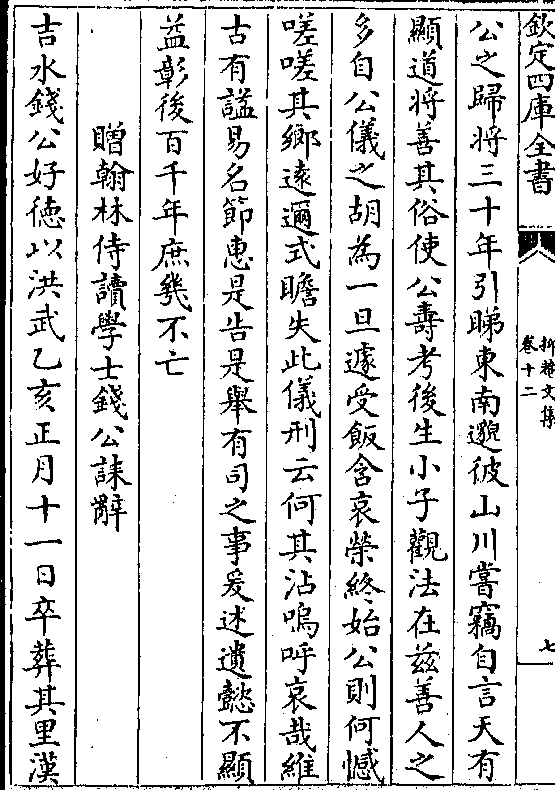 欽定四庫全書
抑菴文集
卷十二
七
公之歸將三十年引睇東南邈彼山川嘗竊自言天有
顯道將善其俗使公壽考後生小子觀法在兹善人之
多自公儀之胡為一旦遽受飯含哀榮終始公則何憾
嗟嗟其鄉逺邇式瞻失此儀刑云何其沾嗚呼哀哉維
古有諡易名節惠是告是舉有司之事爰述遺懿不顯
益彰後百千年庶㡬不亡
贈翰林侍讀學士錢公誄辭
吉水錢公好徳以洪武乙亥正月十一日卒葬其里漢